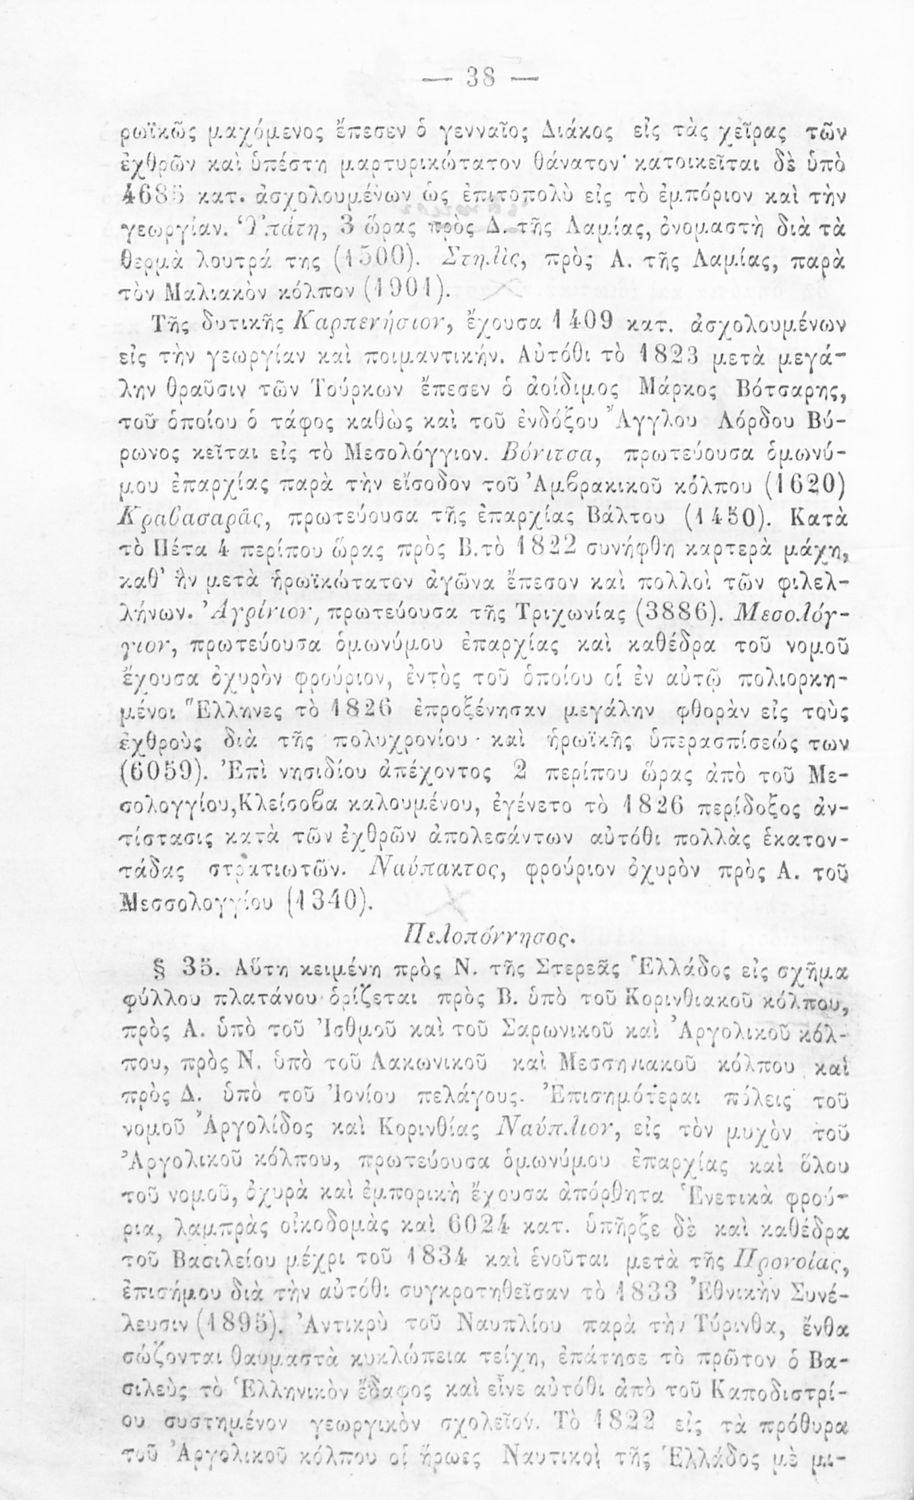 — 38 —
ρωϊκῶς μαχόμενος ἔπεσεν ὁ γενναῖος Διάκος εἰς τὰς χεῖρας τῶν
ἐχθρῶν καὶ ὑπέστη μαρτυρικώτατον θάνατον· κατοικεῖται δὲ ὑπὸ
4685 κατ. ἀσχολουμένων ὡς ἐπιτοπολὺ εἰς τὸ ἐμπόριον καὶ τὴν
γεωργίαν. Ὑπάτη, 3 ὥρας πρὸς Δ. τῆς Λαμίας, ὀνομαστὴ διὰ τὰ
θερμὰ λουτρά της (1500). Στηλὶς, πρὸς Α. τῆς Λαμίας, παρὰ
τὸν Μαλιακὸν κόλπον (1901).
Τῆς δυτικῆς Καρπενήσιον, ἔχουσα 1409 κατ. ἀσχολουμένων
εἰς τὴν γεωργίαν καὶ ποιμαντικήν. Αὐτόθι τὸ 1823 μετὰ μεγά-
λην θραῦσιν τῶν Τούρκων ἔπεσεν ὁ ἀοίδιμος Μάρκος Βότσαρης,
τοῦ ὁποίου ὁ τάφος καθὼς καὶ τοῦ ἐνδόξου Ἄγγλου Λόρδου Βύ-
ρωνος κεῖται εἰς τὸ Μεσολόγγιον. Βόνιτσα, πρωτεύουσα ὁμωνύ-
μου ἐπαρχίας παρὰ τὴν εἴσοδον τοῦ Ἀμβρακικοῦ κόλπου (1620)
Κραβασαρᾶς, πρωτεύουσα τῆς ἐπαρχίας Βάλτου (1450). Κατὰ
τὸ Πέτα 4 περίπου ὥρας πρὸς Β. τὸ 1822 συνήφθη καρτερὰ μάχη,
καθ' ἣν μετὰ ἡρωϊκώτατον ἀγῶνα ἔπεσον καὶ πολλοὶ τῶν φιλελ-
λήνων. Ἀγρίνιον, πρωτεύουσα τῆς Τριχωνίας (3886). Μεσολόγ-
γιον, πρωτεύουσα ὁμωνύμου ἐπαρχίας καὶ καθέδρα τοῦ νομοῦ
ἔχουσα ὀχυρὸν φρούριον, ἐντὸς τοῦ ὁποίου οἱ ἐν αὐτῷ πολιορκη-
μένοι Ἕλληνες τὸ 1826 ἐπροξένησαν μεγάλην φθορὰν εἰς τοὺς
ἐχθροὺς διὰ τῆς πολυχρονίου καὶ ἡρωϊκῆς ὑπερασπίσεώς των
(6059). Ἐπὶ νησιδίου ἀπέχοντος 2 περίπου ὥρας ἀπὸ τοῦ Με-
σολογγίου, Κλείσοβα καλουμένου, ἐγένετο τὸ 1826 περίδοξος ἀν-
τίστασις κατὰ τῶν ἐχθρῶν ἀπολεσάντων αὐτόθι πολλὰς ἑκατον-
τάδας στρατιωτῶν. Ναύπακτος, φρούριον ὀχυρὸν πρὸς Α. τοῦ
Μεσσολογγίου (1340).
Πελοπόννησος.
§ 35. Αὕτη κειμένη πρὸς Ν. τῆς Στερεᾶς Ἑλλάδος εἰς σχῆμα
φύλλου πλατάνου ὁρίζεται πρὸς Β. ὑπὸ τοῦ Κορινθιακοῦ κόλπου,
πρὸς Α. ὑπὸ τοῦ Ἰσθμοῦ καὶ τοῦ Σαρωνικοῦ καὶ Ἀργολικοῦ κόλ-
που, πρὸς Ν. ὑπὸ τοῦ Λακωνικοῦ καὶ Μεσσηνιακοῦ κόλπου καὶ
πρὸς Δ. ὑπὸ τοῦ Ἰονίου πελάγους. Ἐπισημότεραι πόλεις τοῦ
νομοῦ Ἀργολίδος καὶ Κορινθίας Ναύπλιον, εἰς τὸν μυχὸν τοῦ
Ἀργολικοῦ κόλπου, πρωτεύουσα ὁμωνύμου ἐπαρχίας καὶ ὅλου
τοῦ νομοῦ, ὀχυρὰ καὶ ἐμπορικὴ ἔχουσα ἀπόρθητα Ἑνετικὰ φρού-
ρια, λαμπρὰς οἰκοδομὰς καὶ 6024 κατ. ὑπῆρξε δὲ καὶ καθέδρα
τοῦ Βασιλείου μέχρι τοῦ 1834 καὶ ἑνοῦται μετὰ τῆς Προνοίας,
ἐπισήμου διὰ τὴν αὐτόθι συγκροτηθεῖσαν τὸ 1833 Ἐθνικὴν Συνέ-
λευσιν (1895). Ἀντικρὺ τοῦ Ναυπλίου παρὰ τὴν Τύρινθα, ἔνθα
σώζονται θαυμαστὰ κυκλώπεια τείχη, ἐπάτησε τὸ πρῶτον ὁ Βα-
σιλεὺς τὸ Ἑλληνικὸν ἔδαφος καὶ εἶνε αὐτόθι ἀπὸ τοῦ Καποδιστρί-
ου συστημένον γεωργικὸν σχολεῖον. Τὸ 1822 εἰς τὰ πρόθυρα
τοῦ Ἀργολικοῦ κόλπου οἱ ἥρωες Ναυτικοὶ τῆς Ἑλλάδος μὲ μι-